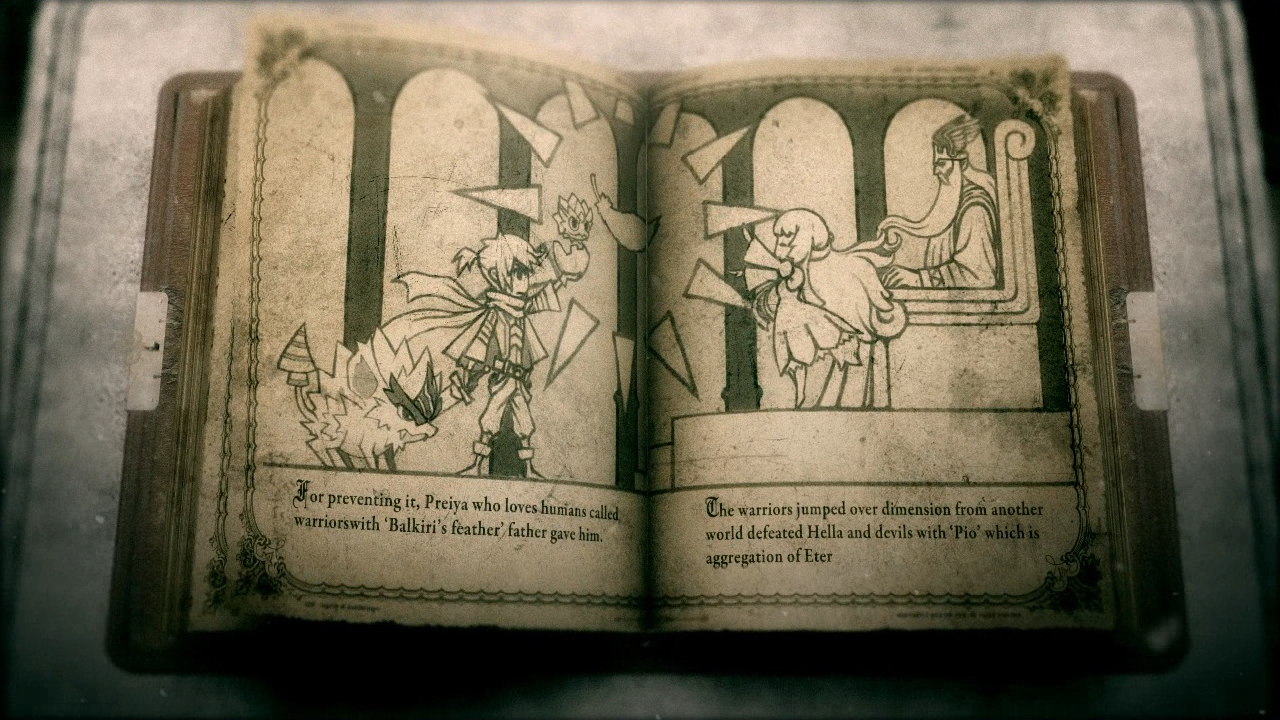 For preventing it, Preiya who loves humans called
warriorswith 'Balkiri's feather' father gave him.
The warriors jumped over dimension from another
world defeated Hella and devils with 'Pio' which is
aggregation of Eter